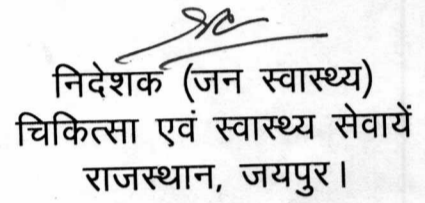 निदेशक (जन स्वास्थ्य)
चिकित्सा एवं स्वास्थ्य सेवायें
राजस्थान, जयपुर।